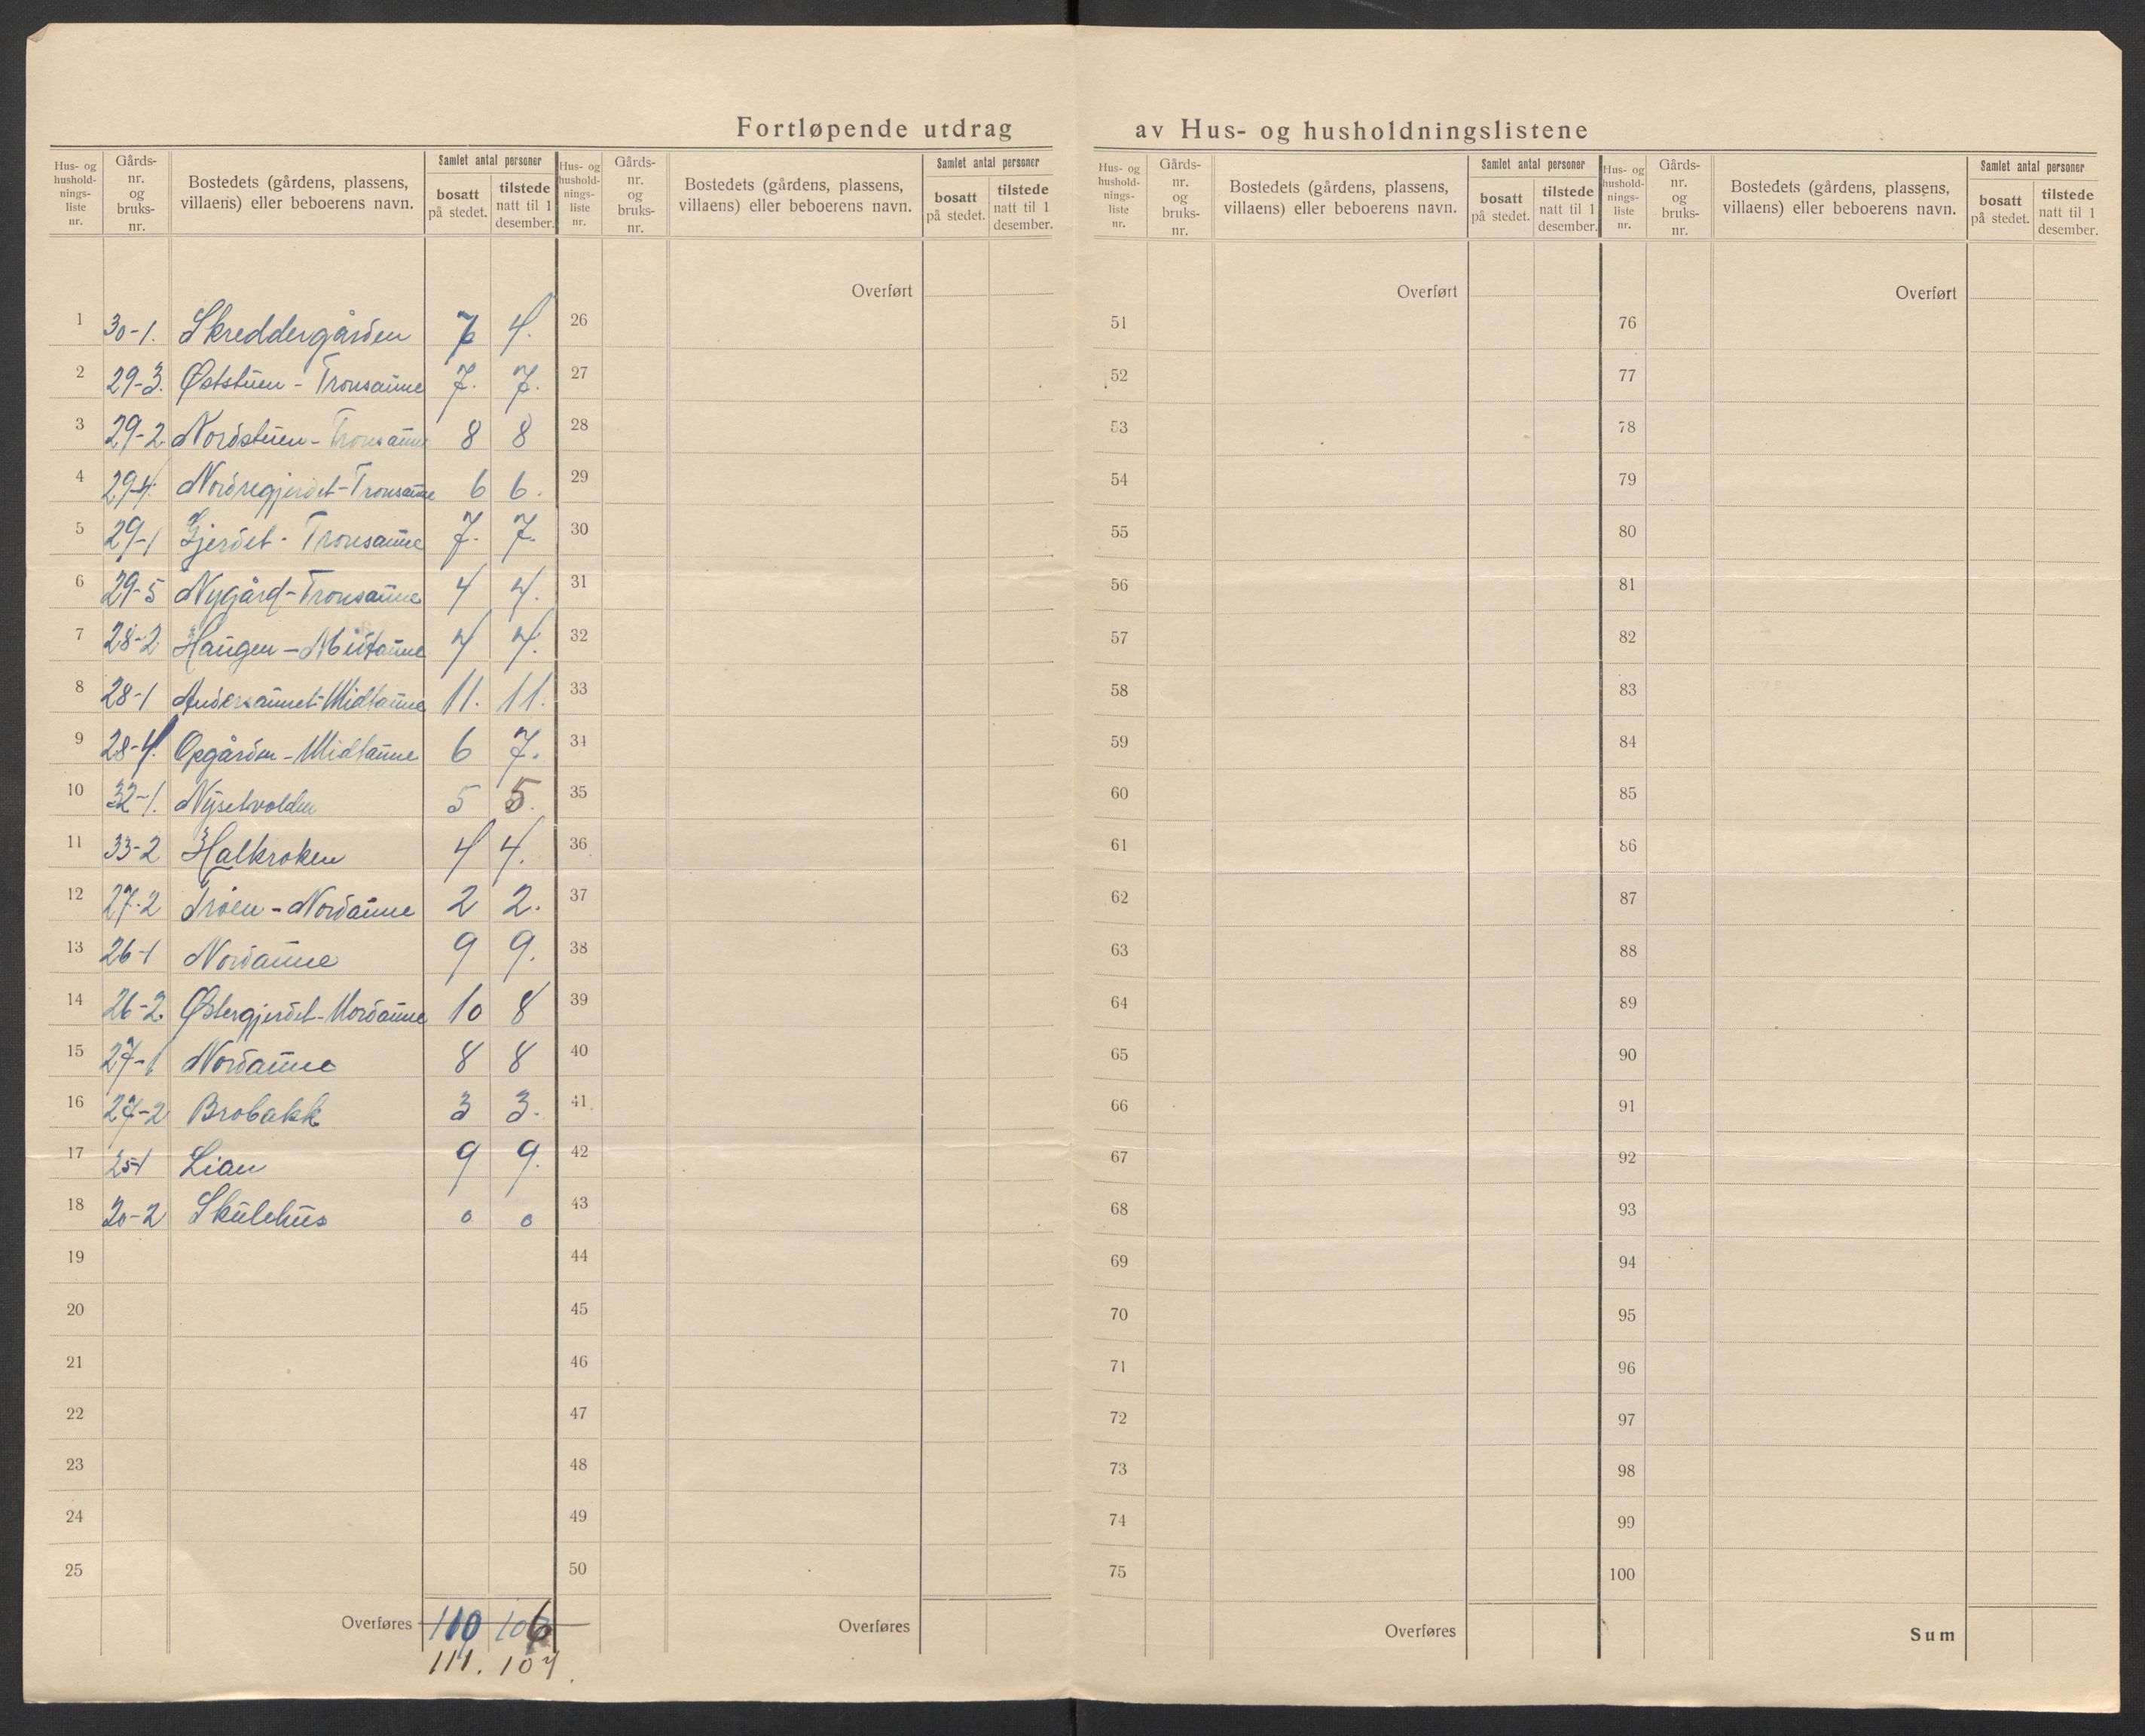 Fortløpende utdrag av Hus- og husholdningslistene
Hus- og hushold- nings- liste nr. | Gårds- nr. og bruks- nr. | Bostedets (gårdens, plassens, villaens) eller beboerens navn. | Samlet antal personer | bosatt på stedet. | tilstede natt til 1 desember.
Hus- og hushold- nings- liste nr. | Gårds- nr. og bruks- nr. | Bostedets (gårdens, plassens, villaens) eller beboerens navn. | Samlet antal personer | bosatt på stedet. | tilstede natt til 1 desember.
Hus- og hushold- nings- liste nr. | Gårds- nr. og bruks- nr. | Bostedets (gårdens, plassens, villaens) eller beboerens navn. | Samlet antal personer | bosatt på stedet. | tilstede natt til 1 desember.
Hus- og hushold- nings- liste nr. | Gårds- nr. og bruks- nr. | Bostedets (gårdens, plassens, villaens) eller beboerens navn. | Samlet antal personer | bosatt på stedet. | tilstede natt til 1 desember.
1 30-1. Skreddergården 4.
2 29-3. Øststuen - Tronsaune 7. 7.
3 29-2 Nordstuen - Tronsaune 8 8
4 29-4. Nordregjerdet - Tronsaune 6 6.
5 29-1 Gjerdet - Tronsaune 7. 7.
6 29-5 Nygård - Tronsaune 4 4.
7 28-2 Haugen - Midtaune 4 4.
8 28-1 Andersaunet - Midtaune 11. 11.
9 28-4. Opgården - Midtaune 6 7.
10 32-1. Nysetvolden 5 5.
11 33-2 Halkroken 4 4.
12 27-2 Trøen - Nordaune 2 2.
13 26-1 Nordaune 9 9.
14 26-2. Østergjerdet - Nordaune 10 8
15 27-1 Nordaune 8 8
16 27-2 Brobakk 3 3.
17 25-1 Lian 9 9.
18 30-2 Skulehus 0 0
19
20
21
22
23
24
25
Overføres 110 106
111. 107.
Overført
26
27
28
29
30
31
32
33
34
35
36
37
38
39
40
41
42
43
44
45
46
47
48
49
50
Overføres
Overført
51
52
53
54
55
56
57
58
59
60
61
62
63
64
65
66
67
68
69
70
71
72
73
74
75
Overføres
Overført
76
77
78
79
80
81
82
83
84
85
86
87
88
89
90
91
92
93
94
95
96
97
98
99
100
Sum